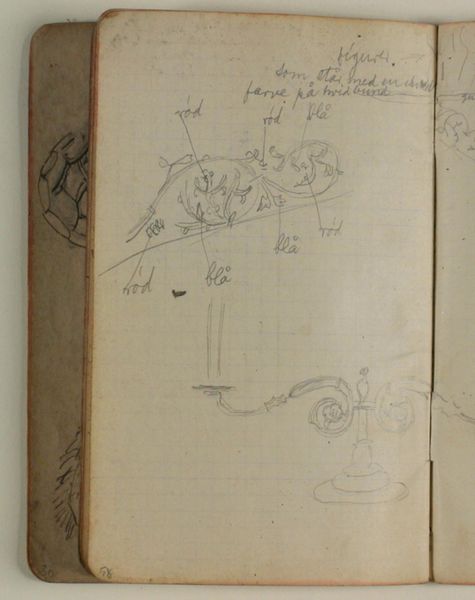 figurer
som står med en
farve på hvid bund
rød rød blå
rød
blå
rød blå
58